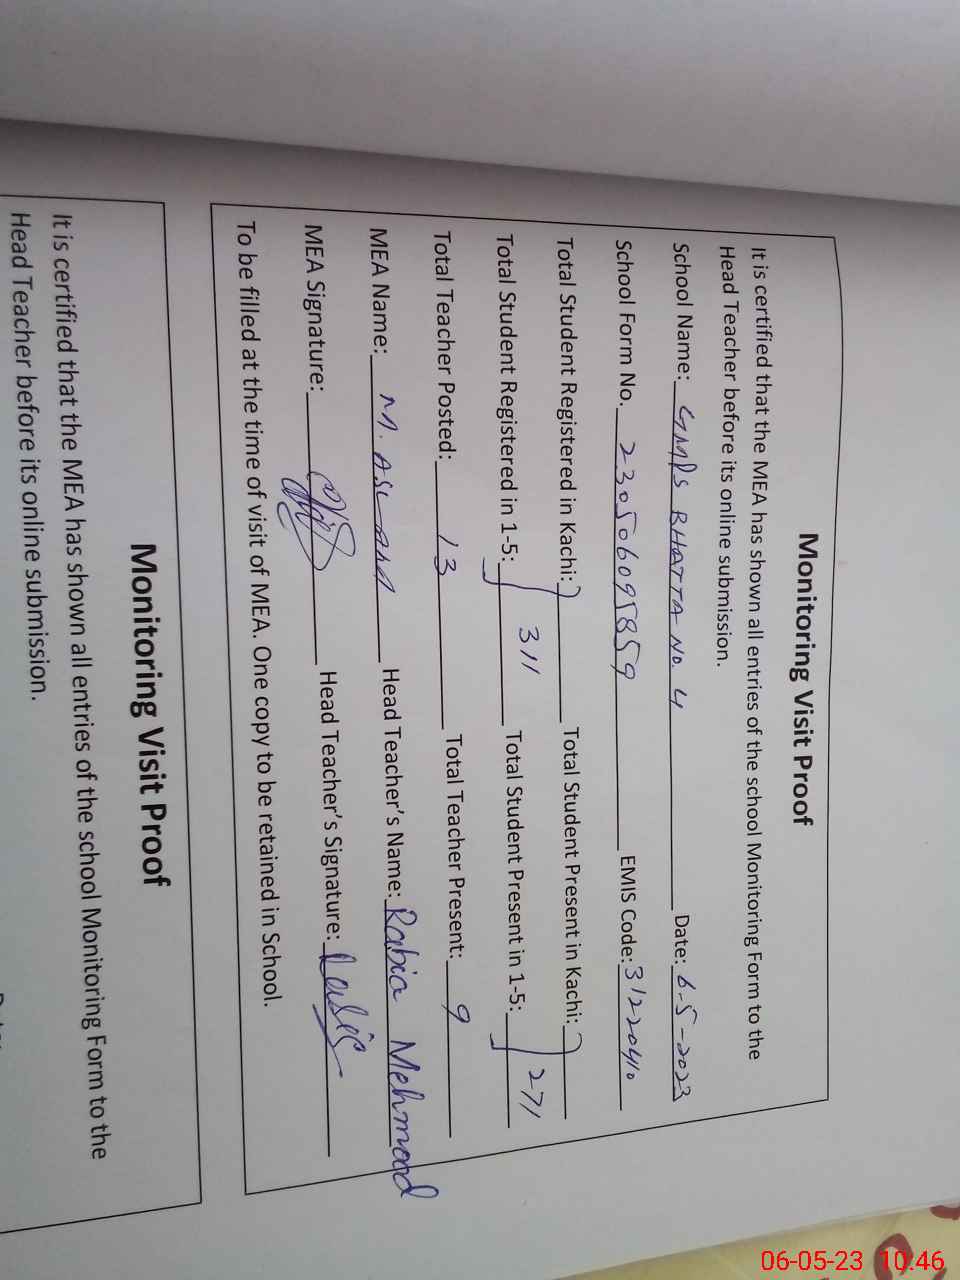 Monitoring Visit Proof
It is certified that the MEA has shown all entries of the school Monitoring Form to the
Head Teacher before its online submission.
School Name: GMPS BHATTA No. 4 Date: 6-5-2023
School Form No. 23050609S859 EMIS Code: 31220410
Total Student Registered in Kachi: Total Student Present in Kachi:
311 271
Total Student Registered in 1-5: Total Student Present in 1-5:
Total Teacher Posted: 13 Total Teacher Present: 9
MEA Name: M. Head Teacher's Name: Rabia Mehmood
MEA Signature: Head Teacher's Signature:
To be filled at the time of visit of MEA. One copy to be retained in School.
Monitoring Visit Proof
It is certified that the MEA has shown all entries of the school Monitoring Form to the
Head Teacher before its online submission.
06-05-23 10.46